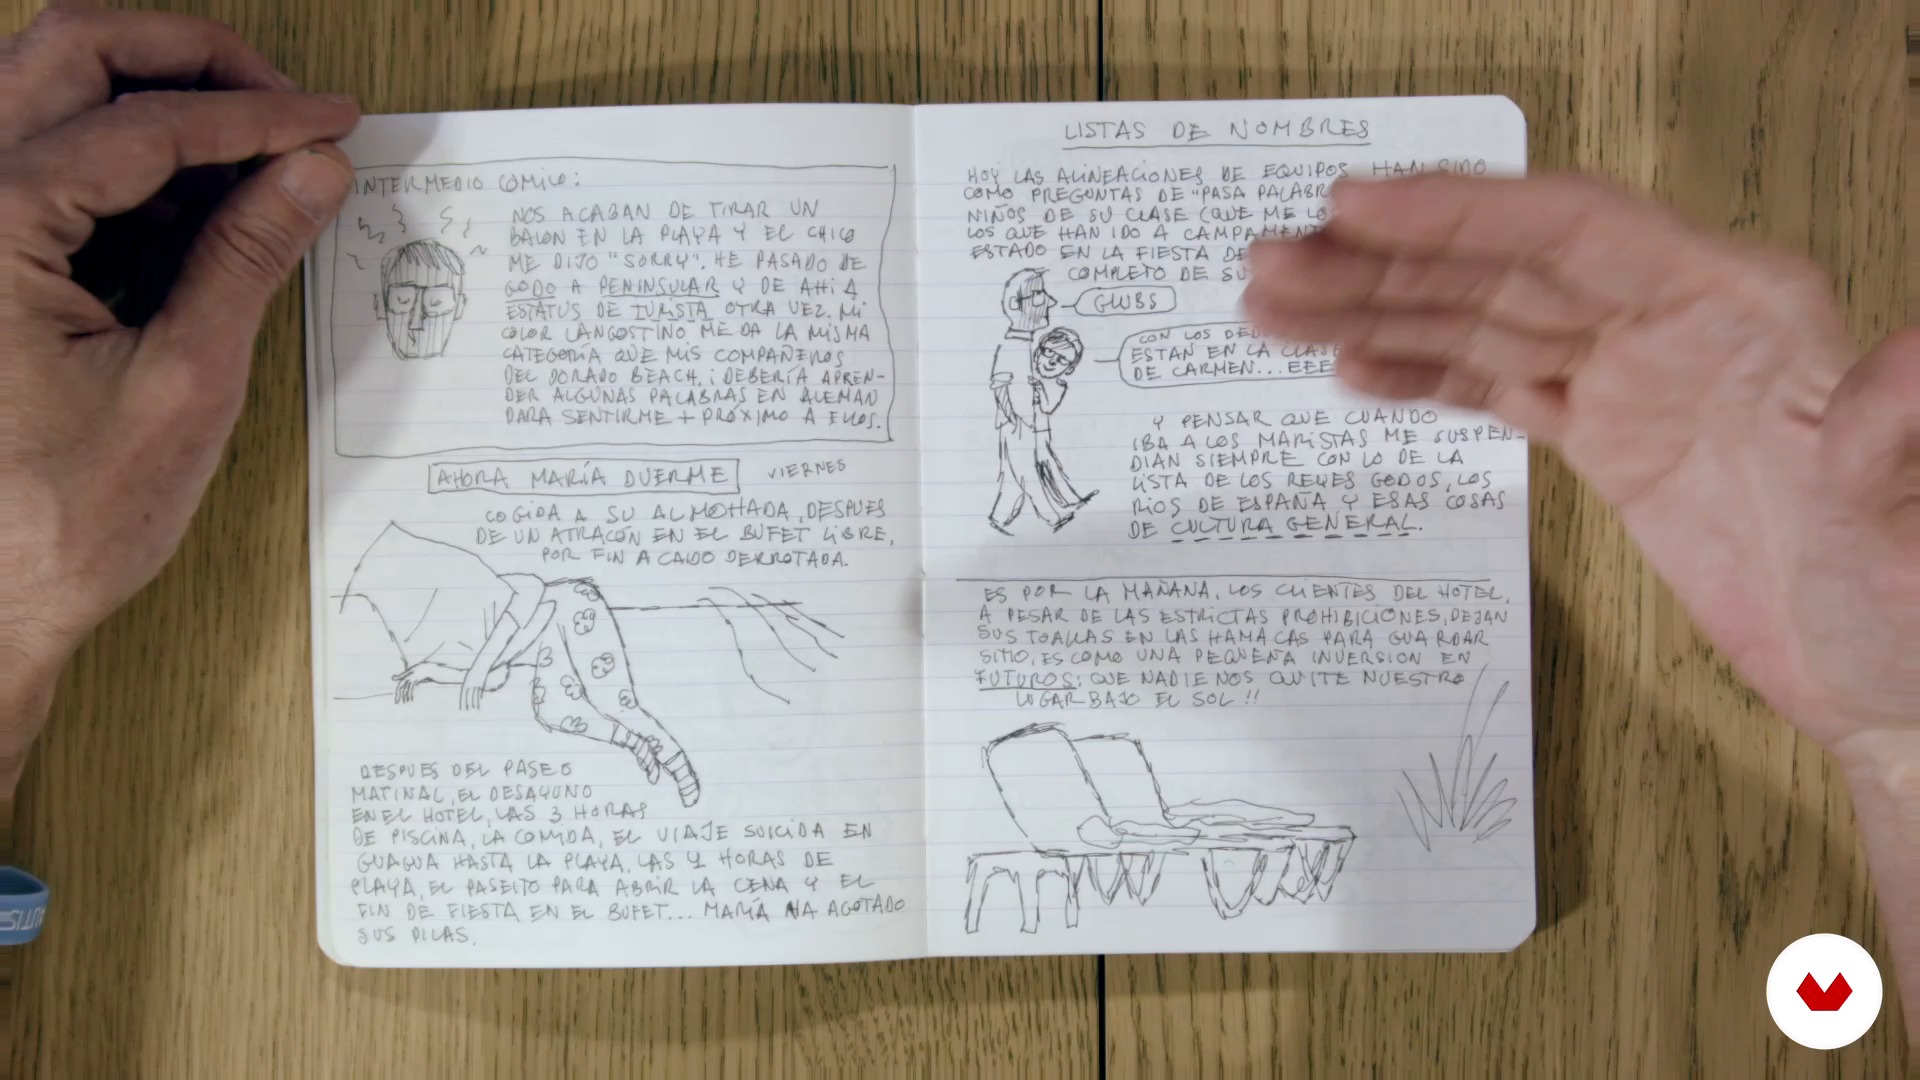 INTERMEDIO COMICO:
NOS ACABAN DE TIRAR UN
BALON EN LA PLAYA Y EL CHICO
ME DIJO "SORRY". HE PASADO DE
GODO A PENINSULAR Y DE AHI A
ESTATUS DE TURISTA OTRA VEZ. MI
COLOR LANGOSTINO ME DA LA MISMA
CATEGORÍA QUE MIS COMPAÑEROS
DEL DORADO BEACH. ¡DEBERÍA APREN-
DER ALGUNAS PALABRAS EN ALEMAN
PARA SENTIRME + PRÓXIMO A ELLOS.
AHORA MARÍA DUERME VIERNES
COGIDA A SU ALMOHADA, DESPUES
DE UN ATRACÓN EN EL BUFET LIBRE,
POR FIN A CAIDO DERROTADA.
DESPUES DEL PASEO
MATINAL, EL DESAYUNO
EN EL HOTEL, LAS 3 HORAS
DE PISCINA, LA COMIDA, EL VIAJE SUICIDA EN
GUAGUA HASTA LA PLAYA, LAS 4 HORAS DE
PLAYA, EL PASEITO PARA ABRIR LA CENA Y EL
FIN DE FIESTA EN EL BUFET... MARÍA HA AGOTADO
SUS PILAS.
LISTAS DE NOMBRES
HOY LAS ALINEACIONES DE EQUIPOS HAN SIDO
COMO PREGUNTAS DE "PASA PALABR
NIÑOS DE SU CLASE (QUE ME LO
LOS QUE HAN IDO A CAMPAMENT
ESTADO EN LA FIESTA DE
COMPLETO DE SU
GLUBS
CON LOS DEDO
ESTAN EN LA CLASE
DE CARMEN... EEE
Y PENSAR QUE CUANDO
IBA A LOS MARISTAS ME SUSPEN-
DIAN SIEMPRE CON LO DE LA
LISTA DE LOS REYES GODOS, LOS
RIOS DE ESPAÑA Y ESAS COSAS
DE CULTURA GENERAL.
ES POR LA MAÑANA. LOS CLIENTES DEL HOTEL,
A PESAR DE LAS ESTRICTAS PROHIBICIONES, DEJAN
SUS TOALLAS EN LAS HAMACAS PARA GUARDAR
SITIO, ES COMO UNA PEQUEÑA INVERSION EN
FUTUROS: QUE NADIE NOS QUITE NUESTRO
LUGAR BAJO EL SOL!!